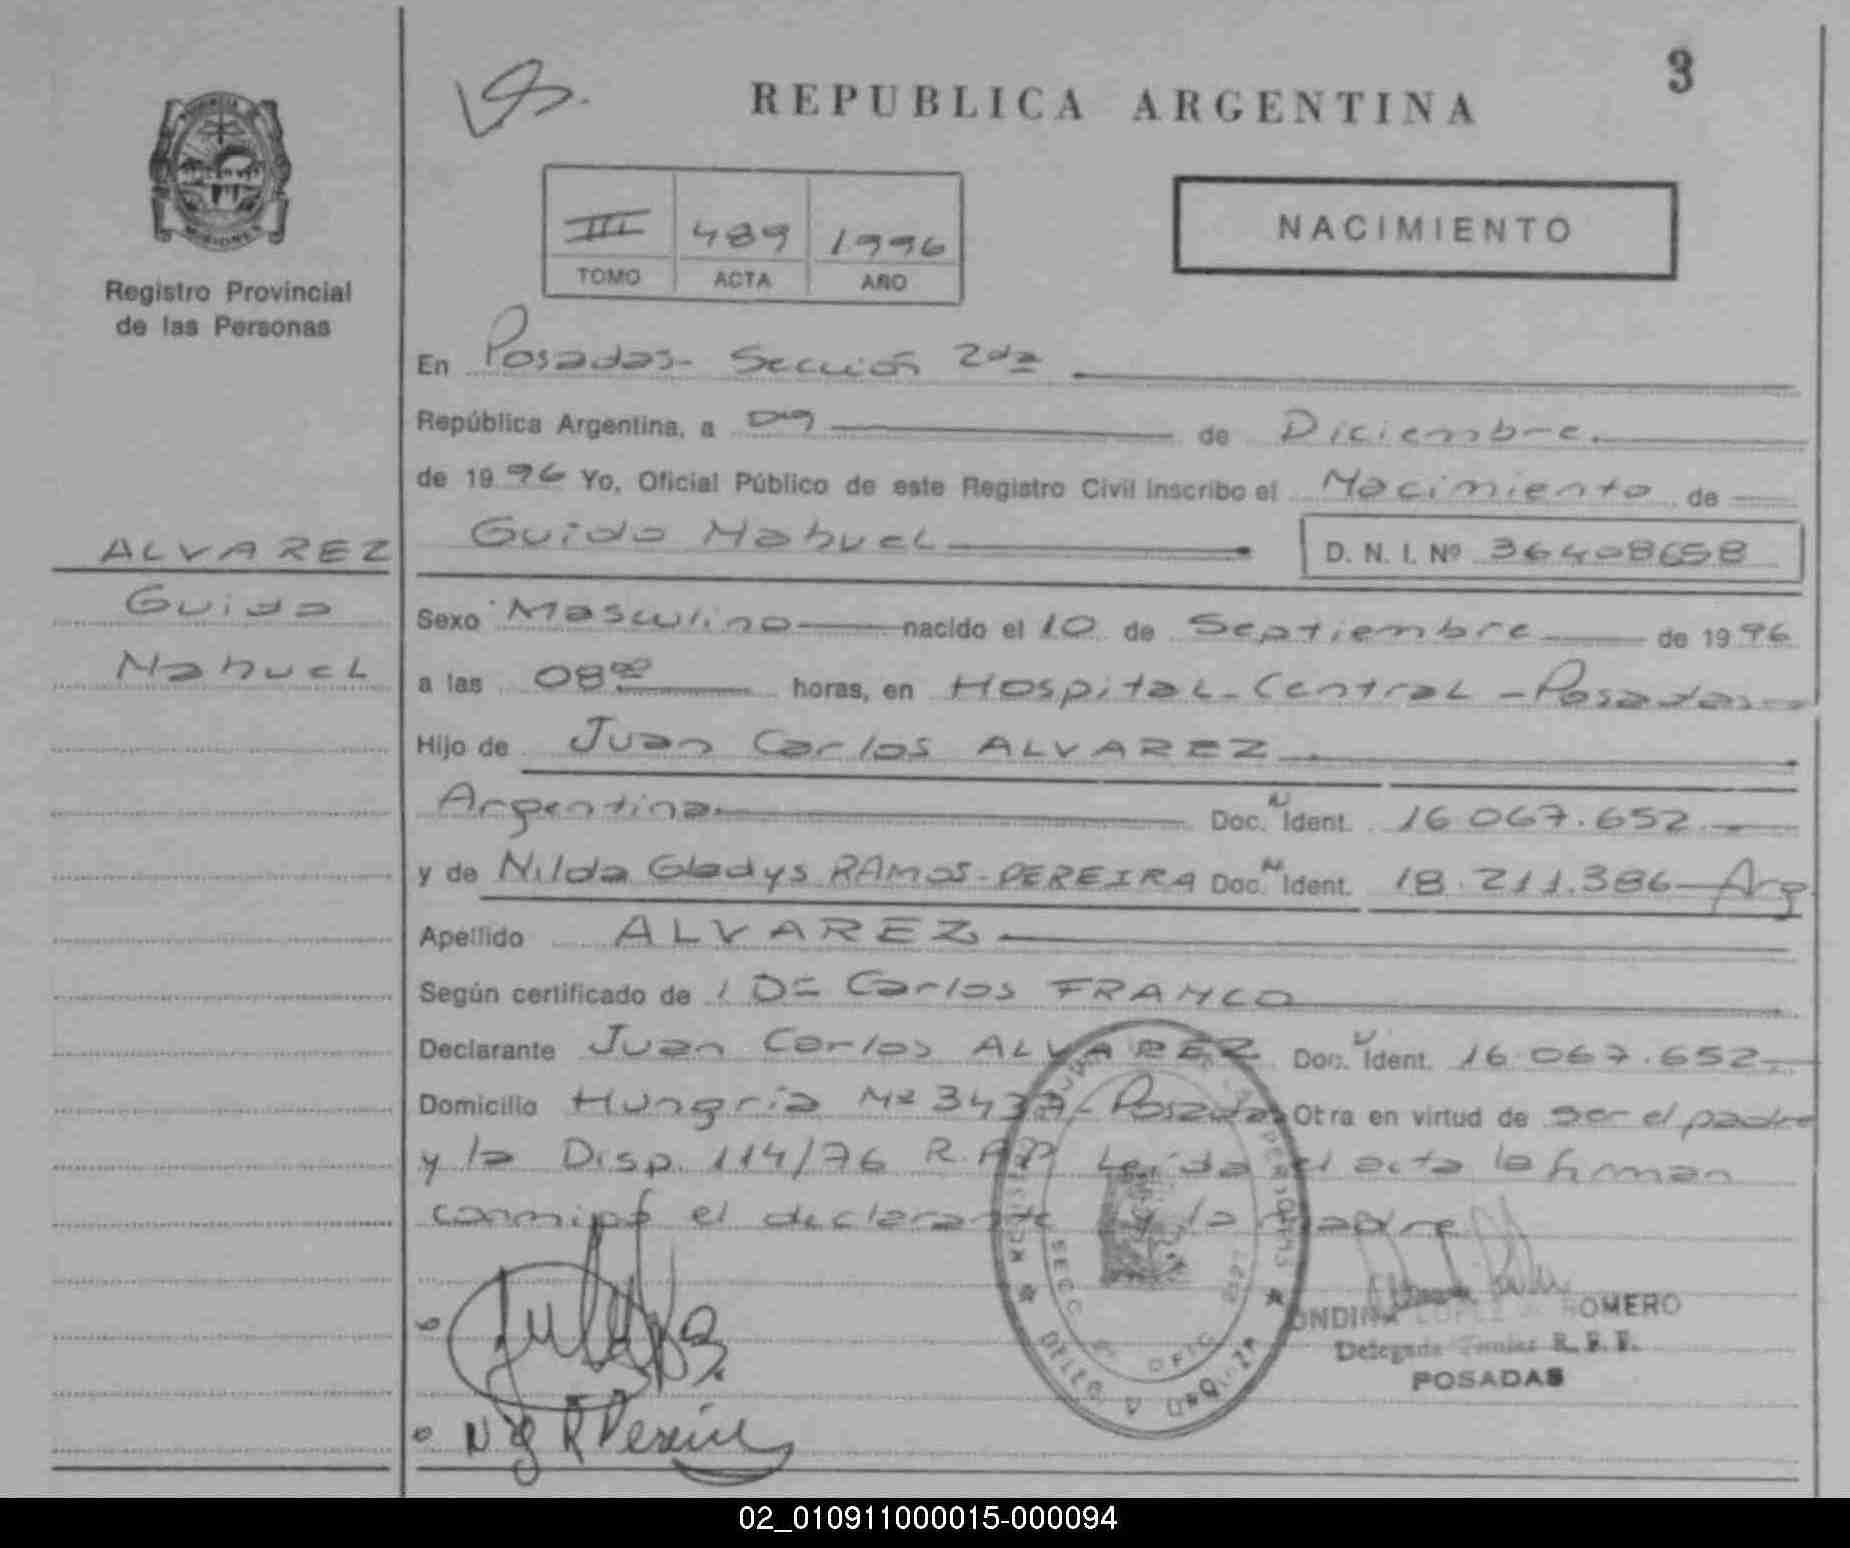 3
REPUBLICA ARGENTINA
NACIMIENTO
III 489 1996
TOMO ACTA AÑO
MISIONES
Registro Provincial
de las Personas
En Posadas- Sección 2da
República Argentina, a 09 de Diciembre.
de 1996 Yo, Oficial Público de este Registro Civil inscribo el Nacimiento de
ALVAREZ
Guido
Nahuel
Guido Nahuel D. N. I. Nº 36408658
Sexo Masculino nacido el 10 de Septiembre de 1996
a las 08 00 horas, en Hospital Central - Posadas
Hijo de Juan Carlos ALVAREZ
Argentina Doc. N Ident. 16.067.652
y de Nilda Gladys RAMOS-PEREIRA Doc. N Ident. 18.211.386 Arg.
Apellido ALVAREZ
Según certificado de Carlos FRANCO
Declarante Juan Carlos ALVAREZ Doc. N Ident. 16.067.652
Domicilio Hungria Nº Posadas Otra en virtud de ser el padre
y la Disp. 114/76 R.P.P Leida el acta la firman
conmigo el declarante y la madre
ROMERO
Delegada R. P. P.
POSADAS
02_010911000015-000094